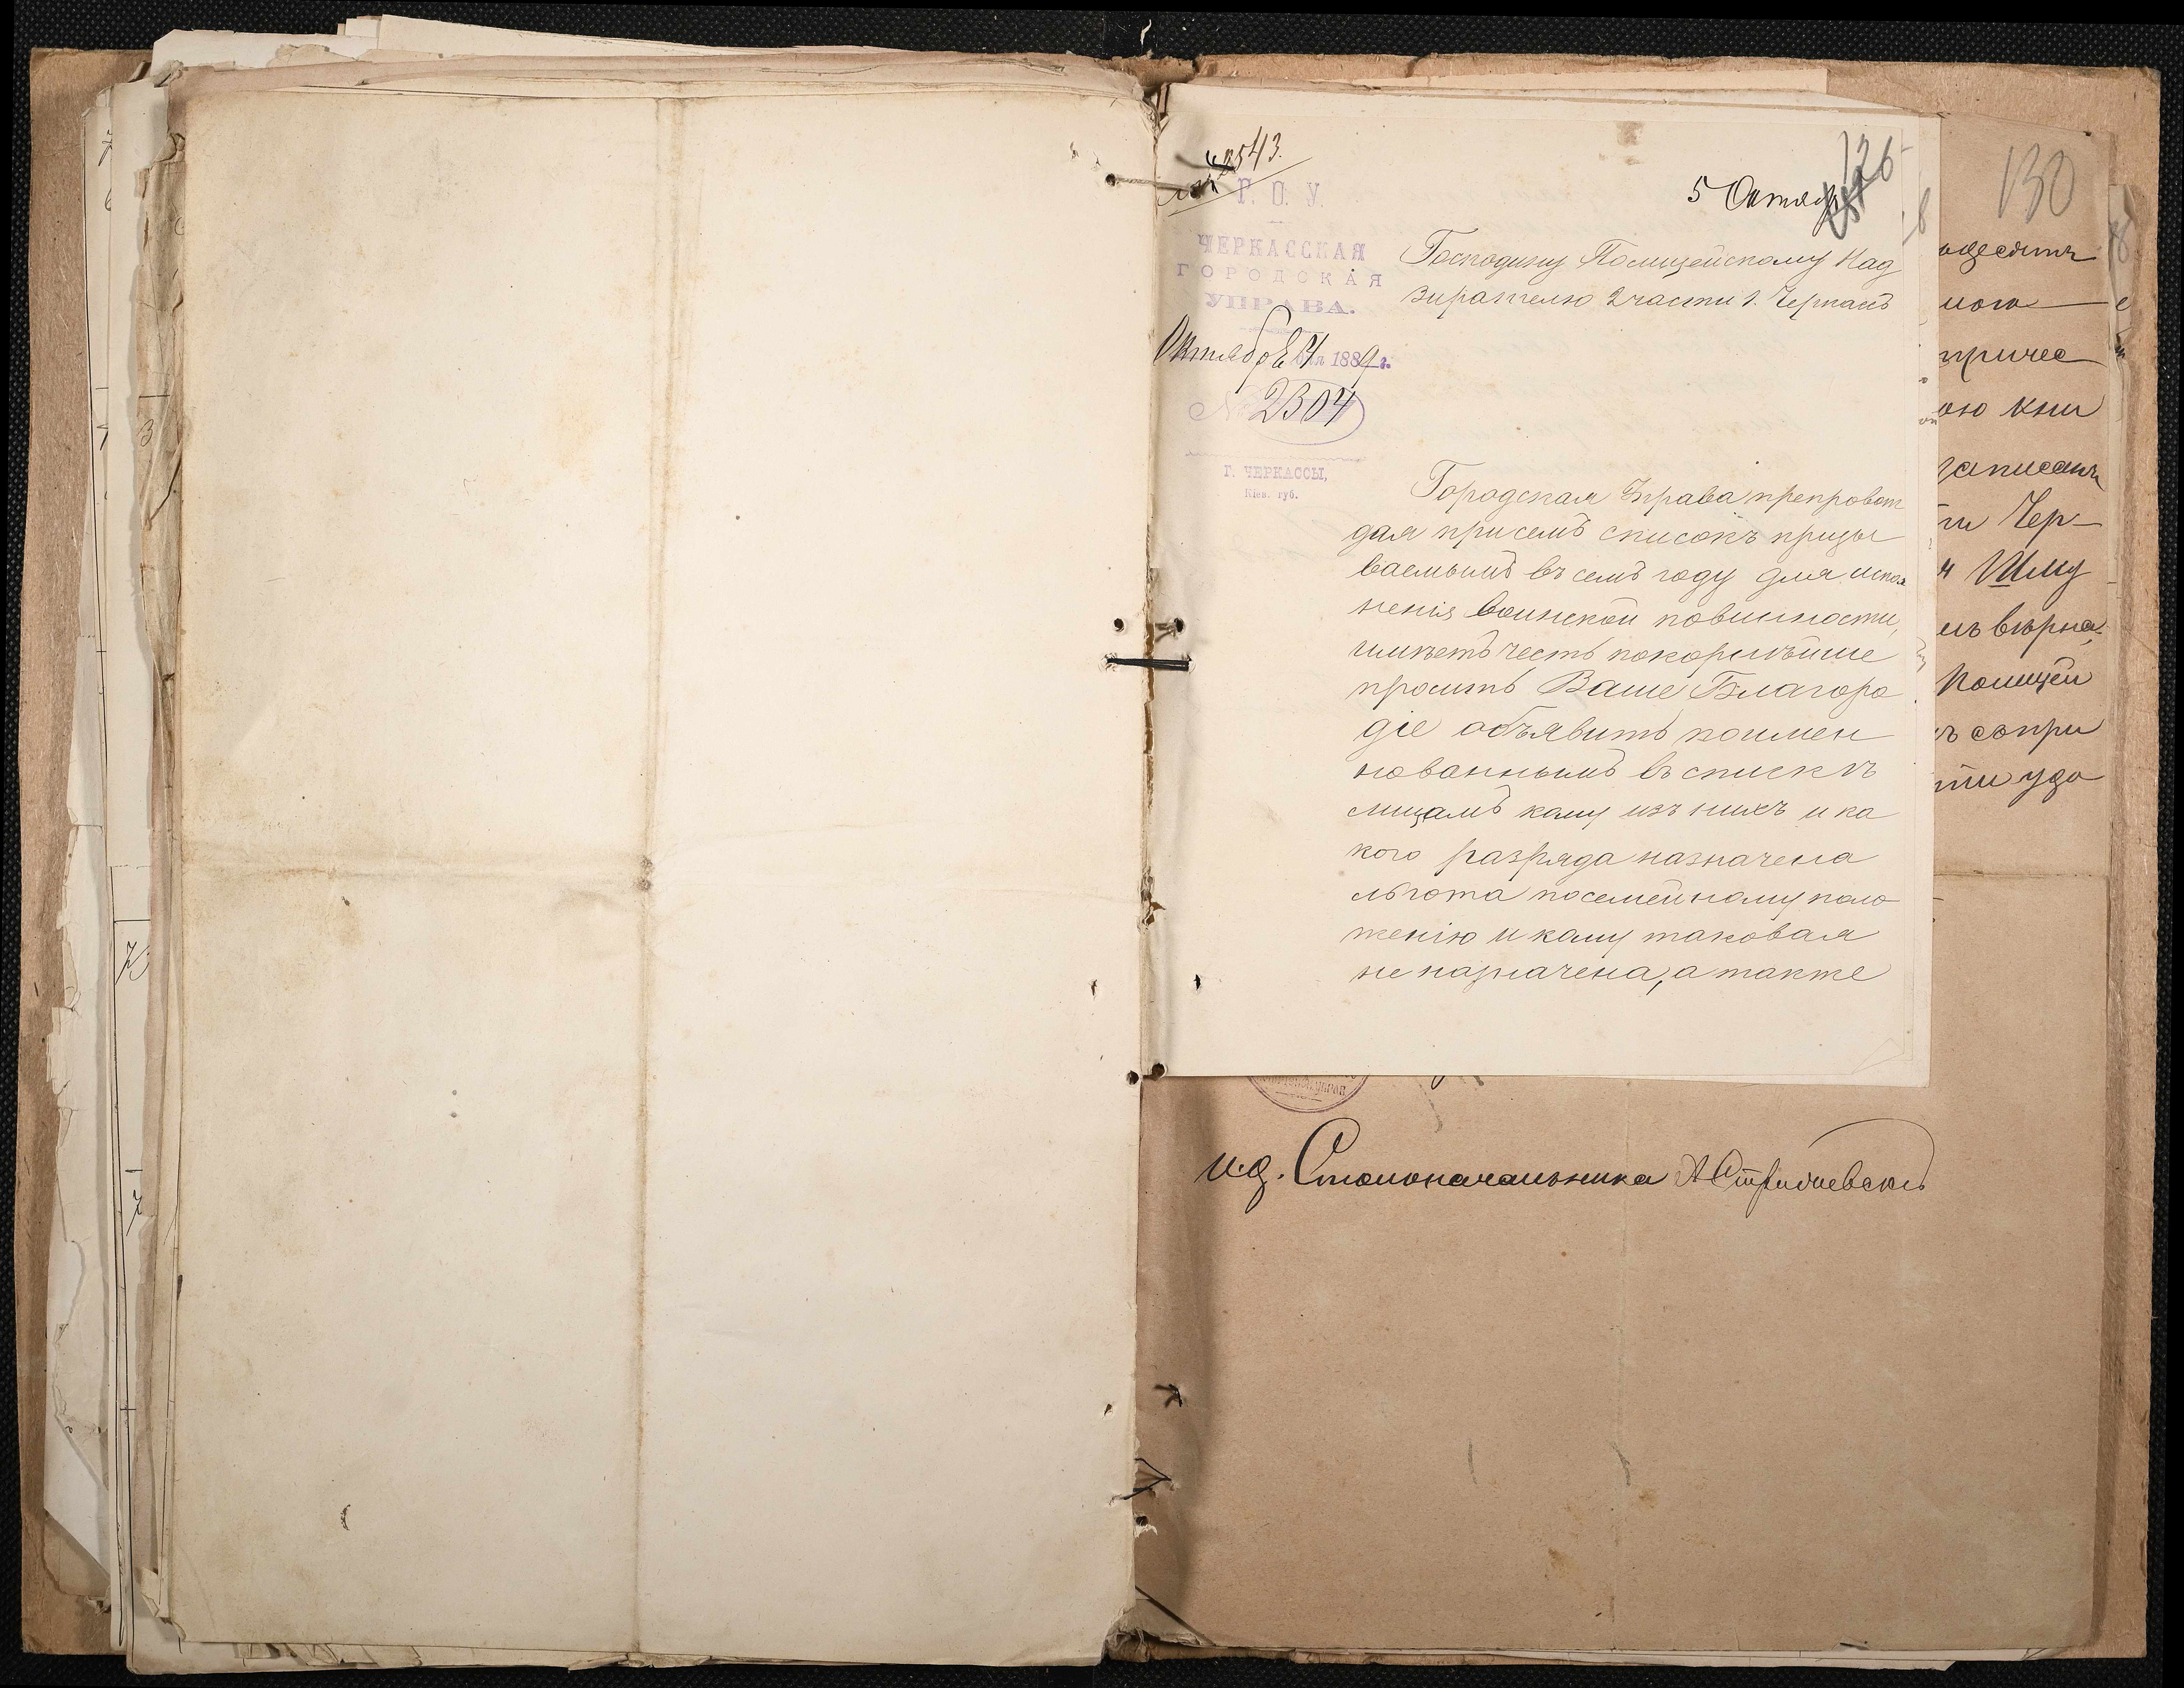 2543.
126
5 Октяб
Г. О. У.
ЧЕРКАССКАЯ
ГОРОДСКАЯ
УПРАВА.
Октября 4 дня 1889 г.
№ 2304
Г. ЧЕРКАССЫ,
Кіев. губ.
Господину Полицейскому Над
зирателю 2 части г. Черкассъ
Городская Управа препровож
дая при семъ списокъ призы
ваемымъ въ семъ году для испол
ненія воинской повинности,
имѣетъ честь покорнѣйше
просить Ваше Благоро
діе объявить поимен
нованнымъ въ спискѣ
лицамъ кому изъ нихъ и ка
кого разряда назначена
льгота по семейному поло
женію и кому таковая
не назначена, а также
И.д. Столоначальника
130
ною
ою кни
записанъ
ти Чер-
Шлиу
вѣрна,
Полицей
сопри
ти удо